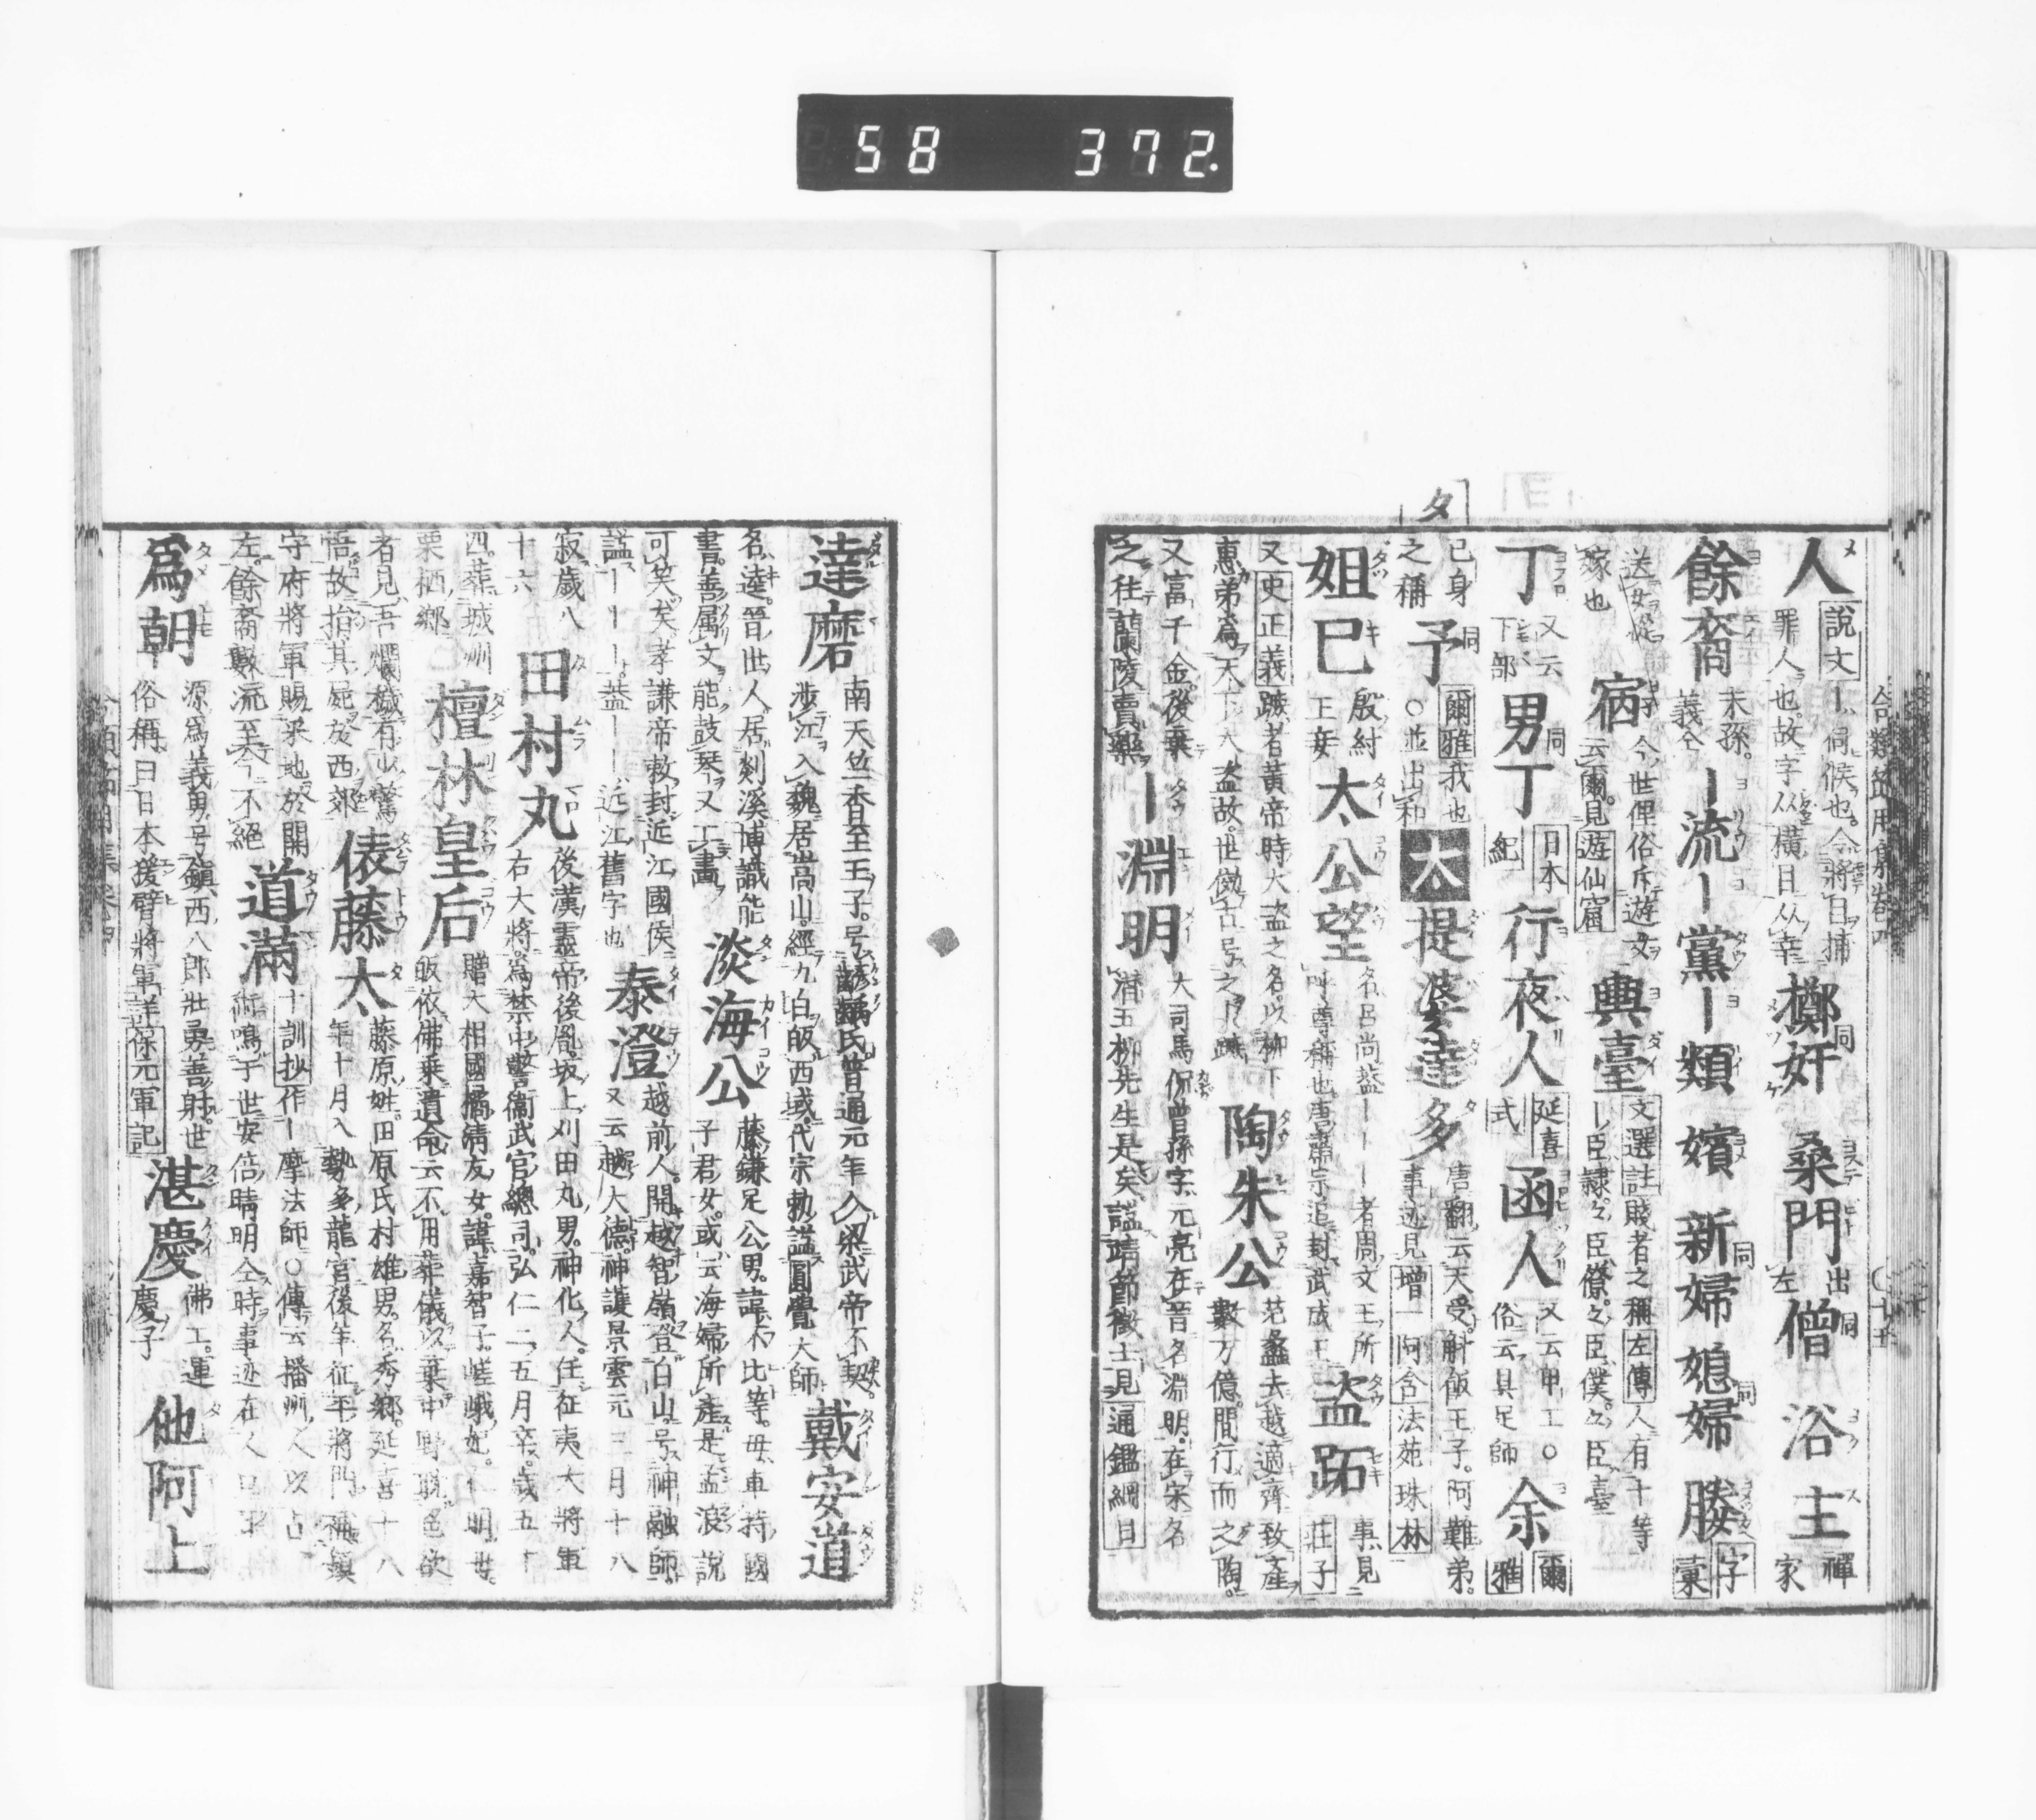 58 372
人 説文ー伺候也令將目捕罪人也故字从橫目从幸 擲奸 同 桑門 出左 僧 同 浴主 禪家
餘裔 末孫義仝 ー流 ー黨 ー類 嬪 新婦 同 媳婦 同 媵 字彙
送女從嫁也 宿 今世俚俗斥遊女云爾見遊仙窟 輿臺 文選註賎者之稱左傳人有十等ー臣隷々臣僚々臣僕々臣臺
丁 又云下部 男丁 同 日本紀 行夜人 延喜式 函人 又云甲工○俗云具足師 余 爾雅
己身之稱 予 同 爾雅我也○並出和 太 提婆達多 唐翻云天受斛飯王子阿難弟事迹見増一阿含法苑珠林
タ
妲己 殷紂王妾 太公望 名呂尚蓋ーーー者周文王所呼尊稱也唐肅宗追封武成王 盗跖 事見莊子
又史正義蹠者黃帝時大盗之名以柳下惠弟為天下大盗故世倣古号之盗蹠 陶朱公 范蠡去越適齊致產數万億間行而之陶
又富千金後乗之往蘭陵賣藥 ー淵明 大司馬侃曾孫字元亮在晉名淵明在宋名潛五柳先生是矣謚靖節徴士見通鑑綱目
達磨 南天竺香至王子号齶齲氏普通元年入梁武帝不契渉江入魏居嵩山經九白皈西域代宗勅謚圓覺大師 戴安道
名逵晉世人居剡溪博識能書善属文能鼓琴又工畫 淡海公 藤鎌足公男諱不比等毋車持國子君女或云海婦所産是孟浪説
可笑矣孝謙帝敕封近江國侯謚ーーー蓋ーー近江舊字也 泰澄 越前人開越智嶺登白山号神融師又云越大德神護景雲元三月十八
寂歳八十六 田村丸 後漢靈帝後胤坂上刈田丸男神化人任征夷大將軍右大將為禁中警衞武官總司弘仁二五月卒歳五十
四葬城州栗栖鄉 檀林皇后 贈大相國橘清友女諱嘉智子嵯峨妃仁明世皈依佛乗遺命云不用葬儀以棄中野聡色欲
者見吾爛壞有以驚悟故捐其屍於西郊 俵藤太 藤原姓田原氏村雄男名秀郷延喜十八年十月入勢多龍宮後年征平將門補鎮
守府將軍賜采地於關左餘裔數流至今不絕 道滿 十訓抄作ー摩法師○傳云播州人以占術鳴于世安倍晴明仝時事迹在人口耳
為朝 源為義男号鎮西八郎壯勇善射世俗稱曰日本援臂將軍詳保元軍記 湛慶 佛工運慶子 他阿上